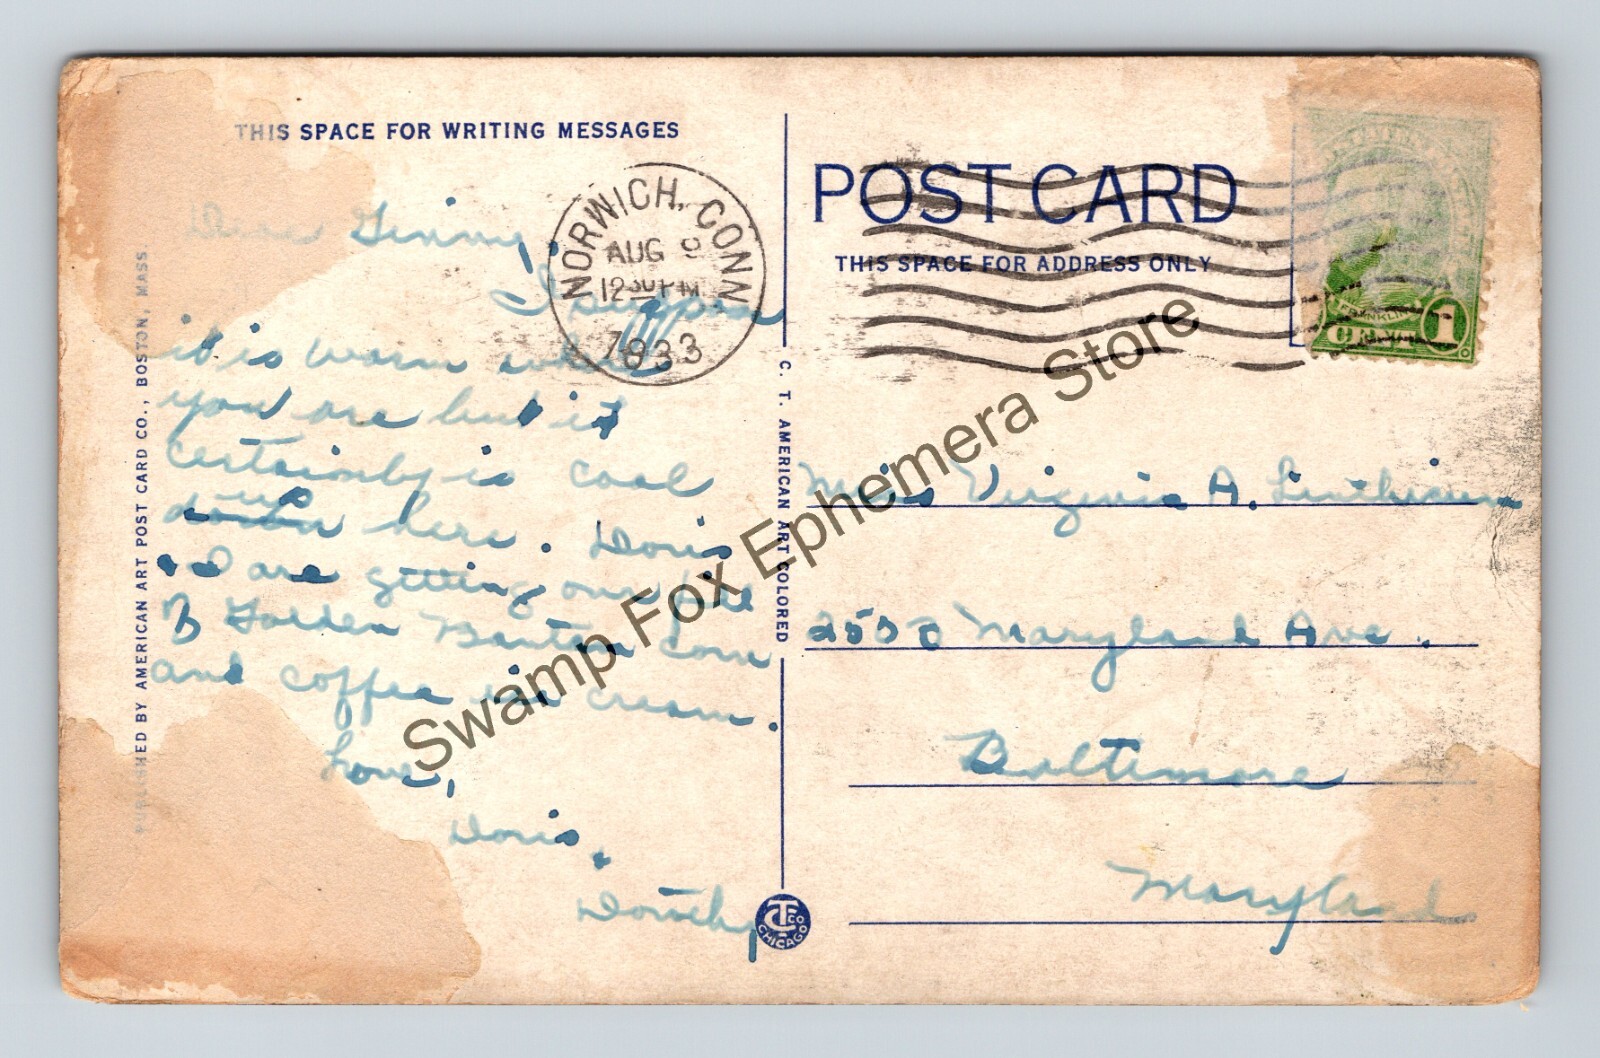 THIS SPACE FOR WRITING MESSAGES
Dear Ginny,
I suppose
it is warm where
you are but it
certainly is cool
up
down here. Doris
& I are getting our fill
of Golden Bantam Corn
and coffee ice cream.
Love,
Doris,
Dorothy
PUBLISHED BY AMERICAN ART POST CARD CO., BOSTON, MASS.
NORWICH, CONN
AUG 9
12 30 PM
1933
C. T. AMERICAN ART COLORED
CT CO
CHICAGO
POST CARD
THIS SPACE FOR ADDRESS ONLY
FRANKLIN
1
Miss Virginia A. Linthicum
Maryland Ave.
Baltimore
Maryland
Swamp Fox Ephemera Store